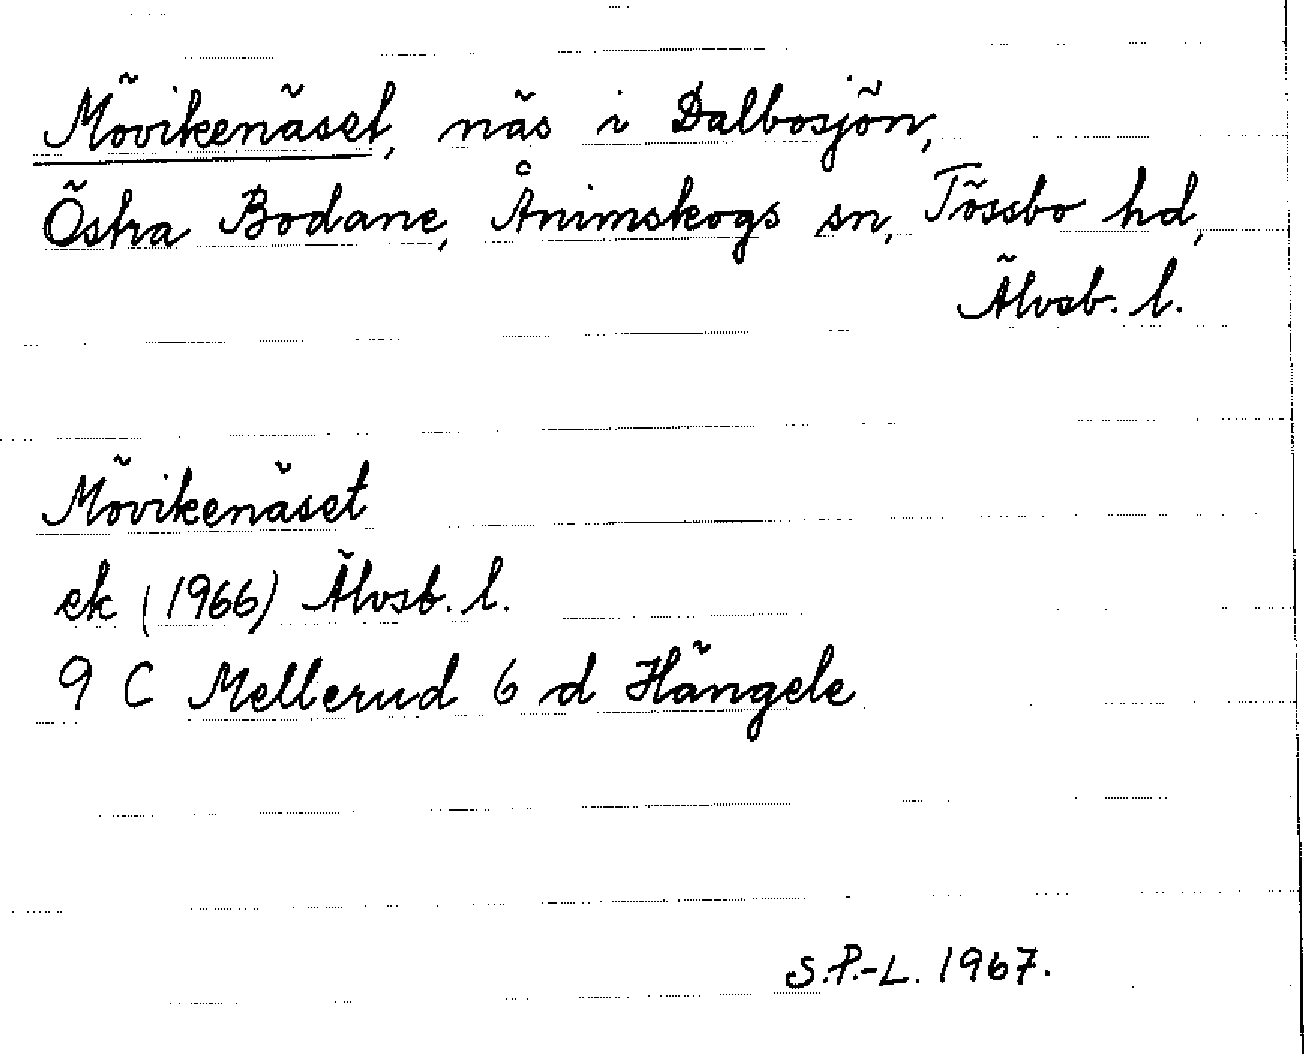 Mövikenäset, näs i Dalbosjön,
Östra Bodane, Ånimskogs sn, Tössbo hd,
Älvsb. l.
Mövikenäset
ek (1966) Älvsb. l.
9 C Mellerud 6 d Hängele
S.P.-L. 1967.